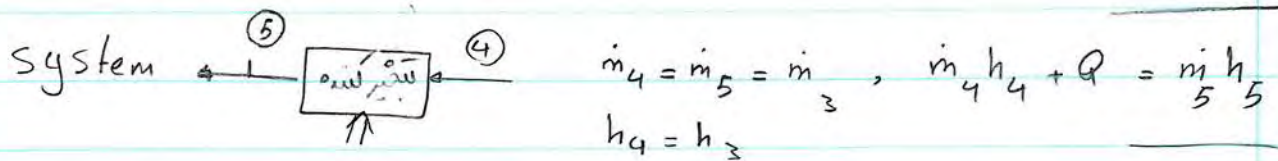 system ⑤ تبخیر کننده ④ ṁ₄ = ṁ₅ = ṁ₃ , ṁ₄h₄ + Q = ṁ₅h₅
h₄ = h₃